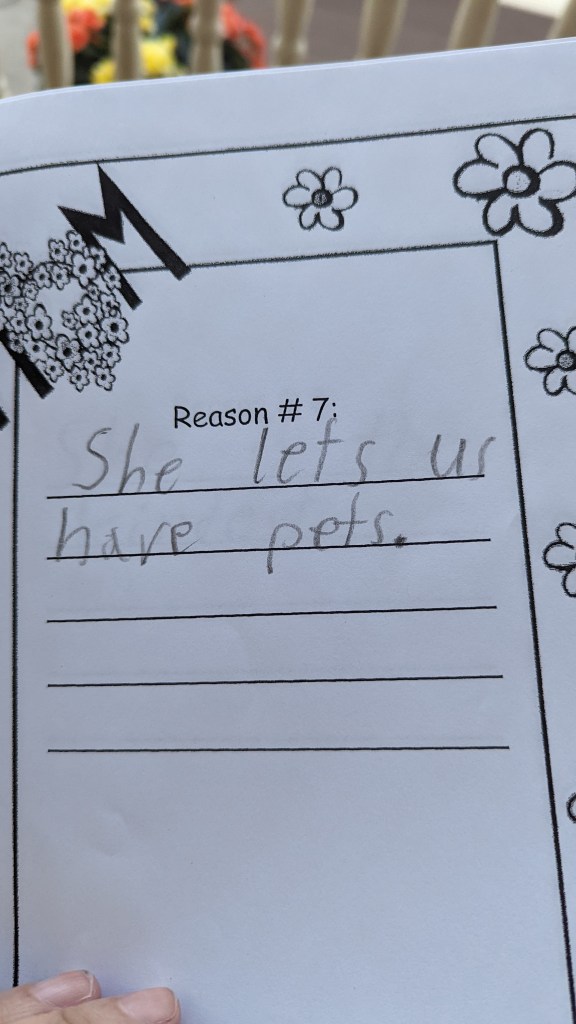 MOM
Reason # 7:
She lets us
have pets.